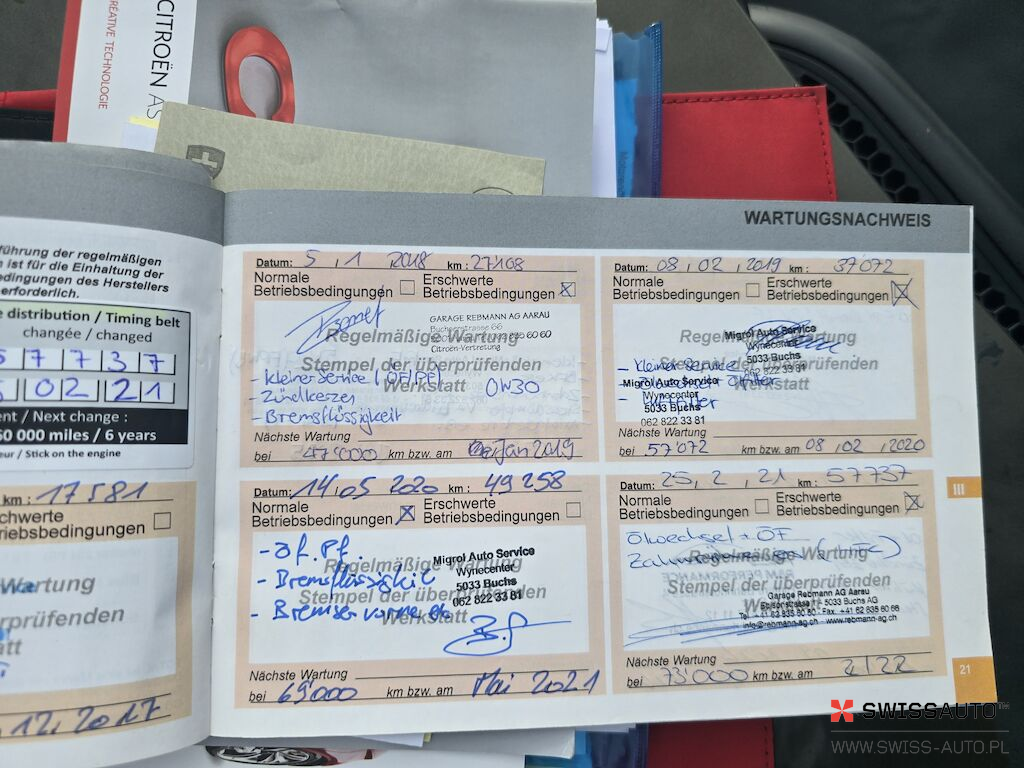 CITROËN AS
CREATIVE TECHNOLOGIE
WARTUNGSNACHWEIS
führung der regelmäßigen
n ist für die Einhaltung der
edingungen des Herstellers
erforderlich.
e distribution / Timing belt
changée / changed
5 7 7 3 7
02 21
ent / Next change :
60 000 miles / 6 years
eur / Stick on the engine
km : 17 581
Erschwerte
Betriebsbedingungen
Wartung
rprüfenden
tatt
.12.2017
Datum: 5 , 1 2018 km : 27108
Normale
Betriebsbedingungen
Erschwerte
Betriebsbedingungen
GARAGE REBMANN AG AARAU
Buchserstrasse 66
60 60
Citroën-Vertretung
Regelmäßige Wartung
Stempel der überprüfenden
Werkstatt
- Kleiner Service
- Zündkerzen
- Bremsflüssigkeit
0W30
Nächste Wartung
bei 47'000 km bzw. am Jan 2019
Datum: 08, 02 , 2019 km : 37'072
Normale
Betriebsbedingungen
Erschwerte
Betriebsbedingungen
Regelmäßige Wartung
Stempel der überprüfenden
Werkstatt
Migrol Auto Service
Wynecenter
5033 Buchs
062 822 33 81
- Kleiner Service
Migrol Auto Service
Wynecenter
5033 Buchs
062 822 33 81
Nächste Wartung
bei 57'072 km bzw. am 08, 02 , 2020
Datum: 14.05 2020 km : 49 258
Normale
Betriebsbedingungen
Erschwerte
Betriebsbedingungen
Regelmäßige Wartung
Stempel der überprüfenden
Werkstatt
- Bremsflüssigkeit
- Bremsen vorne
Migrol Auto Service
Wynecenter
5033 Buchs
062 822 33 81
Nächste Wartung
bei 69'000 km bzw. am Mai 2021
Datum: 25, 2 , 21 km : 57737
Normale
Betriebsbedingungen
Erschwerte
Betriebsbedingungen
Ölwechsel + ÖF
Regelmäßige Wartung
Stempel der überprüfenden
Werkstatt
Garage Rebmann AG Aarau
5033 Buchs AG
Tel. +41 62 835 60 60 - Fax. +41 62 835 60 66
info@rebmann-ag.ch - www.rebmann-ag.ch
Nächste Wartung
bei 73'000 km bzw. am 2/22
III
21
SWISSAUTO™
WWW.SWISS-AUTO.PL